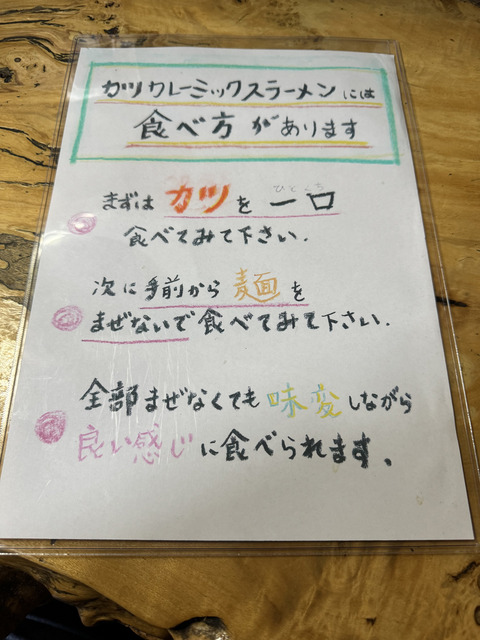 カツカレーミックスラーメンには
食べ方があります
まずはカツを一口
ひとくち
食べてみて下さい.
次に手前から麺を
まぜないで食べてみて下さい.
全部まぜなくても味変しながら
良い感じに食べられます、